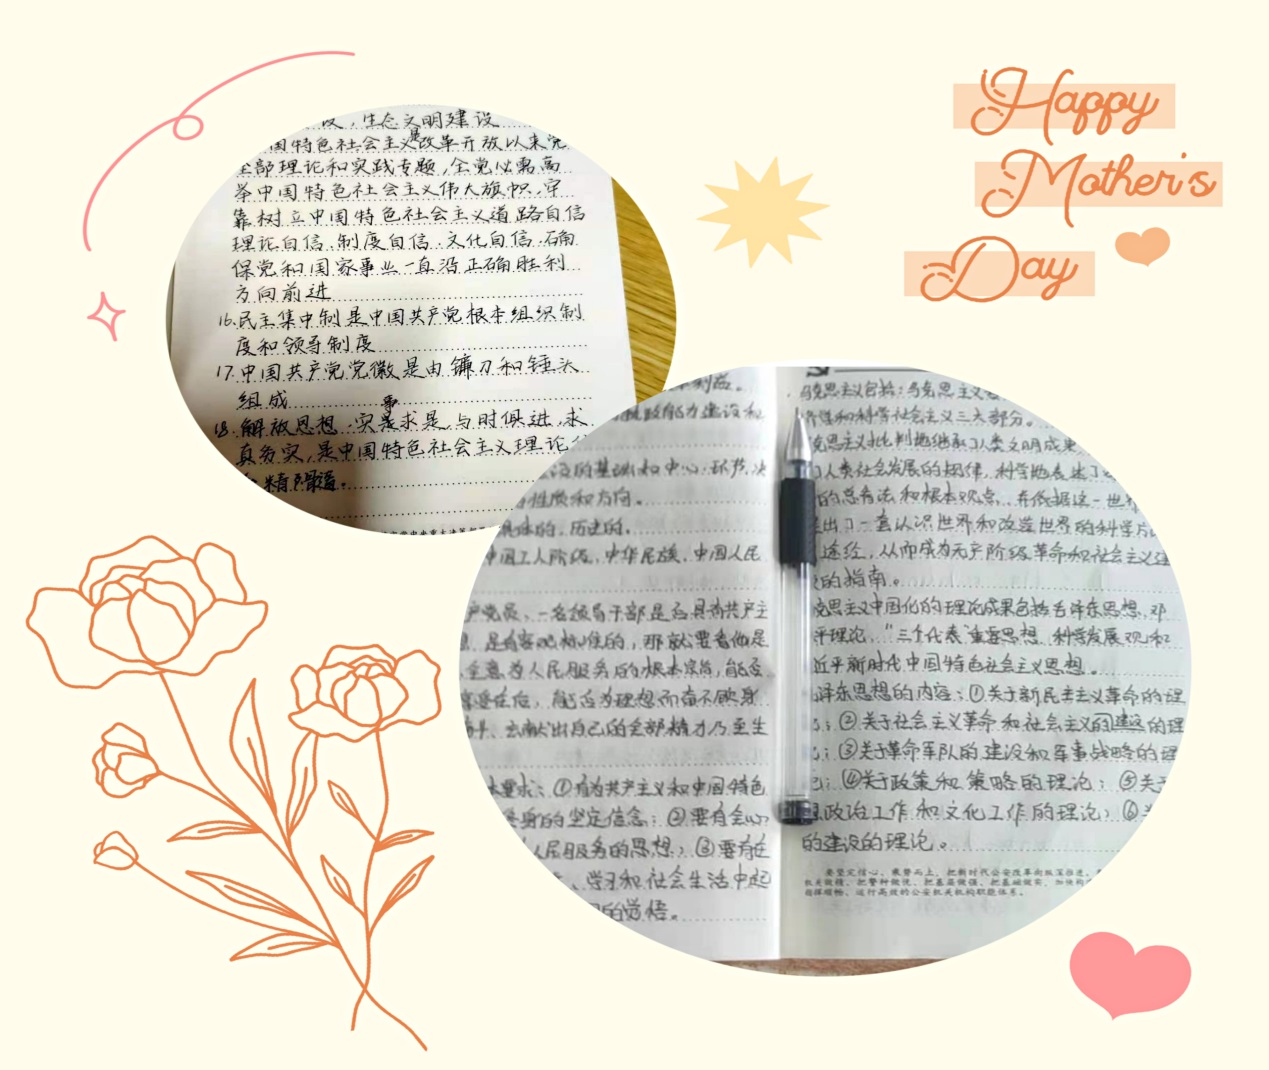 Happy
Mother's
Day
设,生态文明建设
国特色社会主义是改革开放以来党
全部理论和实践专题,全党必需高
举中国特色社会主义伟大旗帜,牢
靠树立中国特色社会主义道路自信
理论自信、制度自信、文化自信,确
保党和国家事业一直沿正确胜利
方向前进
16.民主集中制是中国共产党根本组织制
度和领导制度
17.中国共产党党徽是由镰刀和锤头
组成
18.解放思想,实事求是,与时俱进,求
真务实,是中国特色社会主义理论
精髓。
执政能力建设和
设的基础和中心环节,决
性质和方向。
具体的,历史的。
中国工人阶级,中华民族,中国人民
产党员,一名领导干部是否具有共产主
是有客观标准的,那就要看他是
全意为人民服务的根本宗旨,能否
享受在后,能否为理想而奋不顾身
去献出自己的全部精力乃至生
要求:①有为共产主义和中国特色
终身的坚定信念;②要有全心
人民服务的思想;③要有在
学习和社会生活中起
的觉悟。
马克思主义包括:马克思主义
政治经济学和科学社会主义三大部分。
克思主义批判地继承了人类文明成果
人类社会发展的规律,科学地表述了
的总看法和根本观点,并依据这一世
出了一套认识世界和改造世界的科学方
途径,从而成为无产阶级革命和社会主义建
的指南。
克思主义中国化的理论成果包括毛泽东思想,邓
平理论,"三个代表"重要思想,科学发展观和
近平新时代中国特色社会主义思想。
泽东思想的内容:①关于新民主主义革命的理
;②关于社会主义革命和社会主义的建设的理
;③关于革命军队的建设和军事战略的理
;④关于政策和策略的理论;⑤关于
政治工作和文化工作的理论;⑥
的建设的理论。
要坚定信心、乘势而上,把新时代公安改革向纵深推进,
机关做精、把警种做优、把基层做强、把基础做实,加快构
指挥顺畅、运行高效的公安机关机构职能体系。